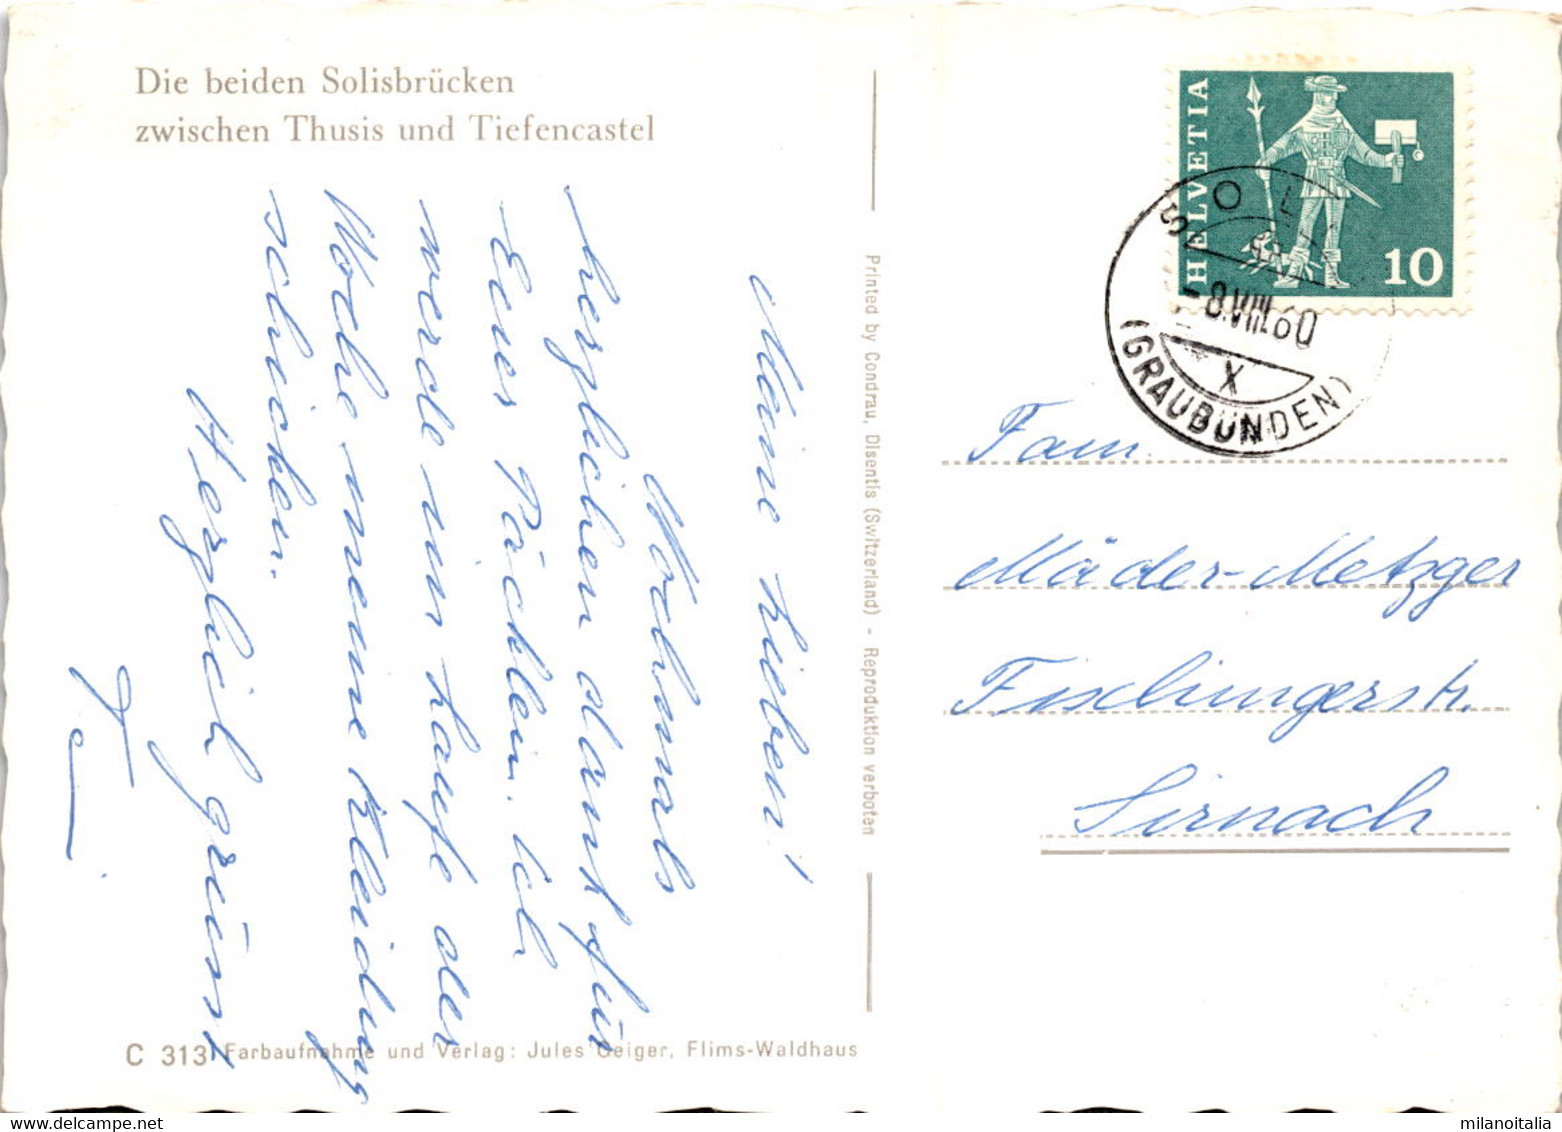 Die beiden Solisbrücken
zwischen Thusis und Tiefencastel
Meine Lieben!
Nochmals
herzlichen dank für
Euer Päcklein. Ich
werde im Laufe der
Woche meine Kleidung
schicken.
Herzlich grüsst
Printed by Condrau, Disentis (Switzerland) - Reproduktion verboten
C 313 Farbaufnahme und Verlag: Jules Geiger, Flims-Waldhaus
HELVETIA
10
SOLI
-8.VIII.60
X
(GRAUBÜNDEN)
Fam.
Mäder-Metzger
Fischingerstr.
Sirnach
milanoitalia